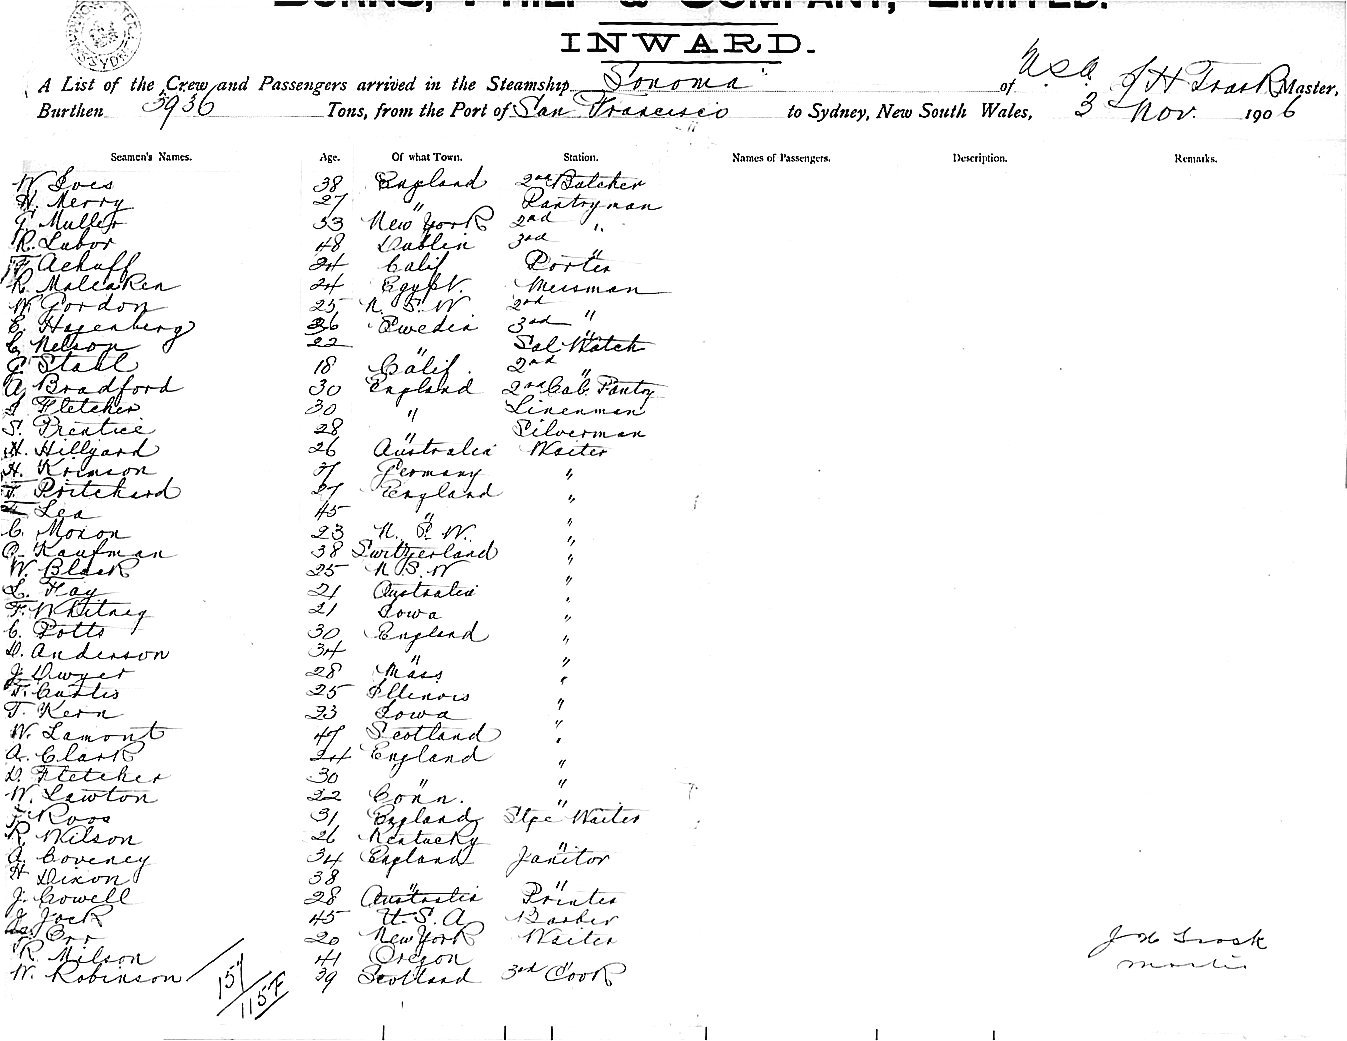 BURNS, PHILP & COMPANY, LIMITED.
INWARD.
A List of the Crew and Passengers arrived in the Steamship Sonoma of U.S.A. J H Trask Master,
Burthen 5936 Tons, from the Port of San Francisco to Sydney, New South Wales, 3 Nov. 1906
Seamen's Names. Age. Of what Town. Station. Names of Passengers. Description. Remarks.
W. Ives 38 England 2nd Butcher
H. Merry 27 " Pantryman
G. Muller 33 New York 2nd "
R. Labor 48 Dublin 3rd "
F. Achuff 24 Calif Porter
R. 24 Egypt. Messman
W. Gordon 25 N. S. W 2nd "
E. Hagenberg 26 Sweden 3rd "
C. Nelson 22 " Sal Watch
G. Stahl 18 Calif. 2nd "
A. Bradford 30 England 2nd Cab. Pantry
Fletcher 30 " Linenman
S. Prentice 28 " Silverman
H. Hillyard 26 Australia Waiter
H. Krimson 37 Germany "
F. Pritchard 27 England "
Lea 45 " "
C. Moxon 23 N. S. W. "
Kaufman 38 Switzerland "
W. Black 25 N S. W "
L. Hay 21 Australia "
F. Whitney 21 Iowa "
C. Potts 30 England "
D. Anderson 34 " "
J. Dwyer 28 Mass "
T. Curtis 25 Illinois "
T. Kern 23 Iowa "
W. Lamont 47 Scotland "
A. Clark 24 England "
D. Fletcher 30 " "
W. Lawton 22 Conn. "
F. Roos 31 England Stge Waiter
R. Wilson 26 Kentucky "
A. Coveney 34 England Janitor
H Dixon 38 " "
J. Cowell 28 Australia Printer
J. Jock 45 U. S. A Barber
Orr 20 New York Waiter
R. Milson 41 Oregon "
W. Robinson 39 Scotland 3rd Cook
157
115F
J H Trask
Master